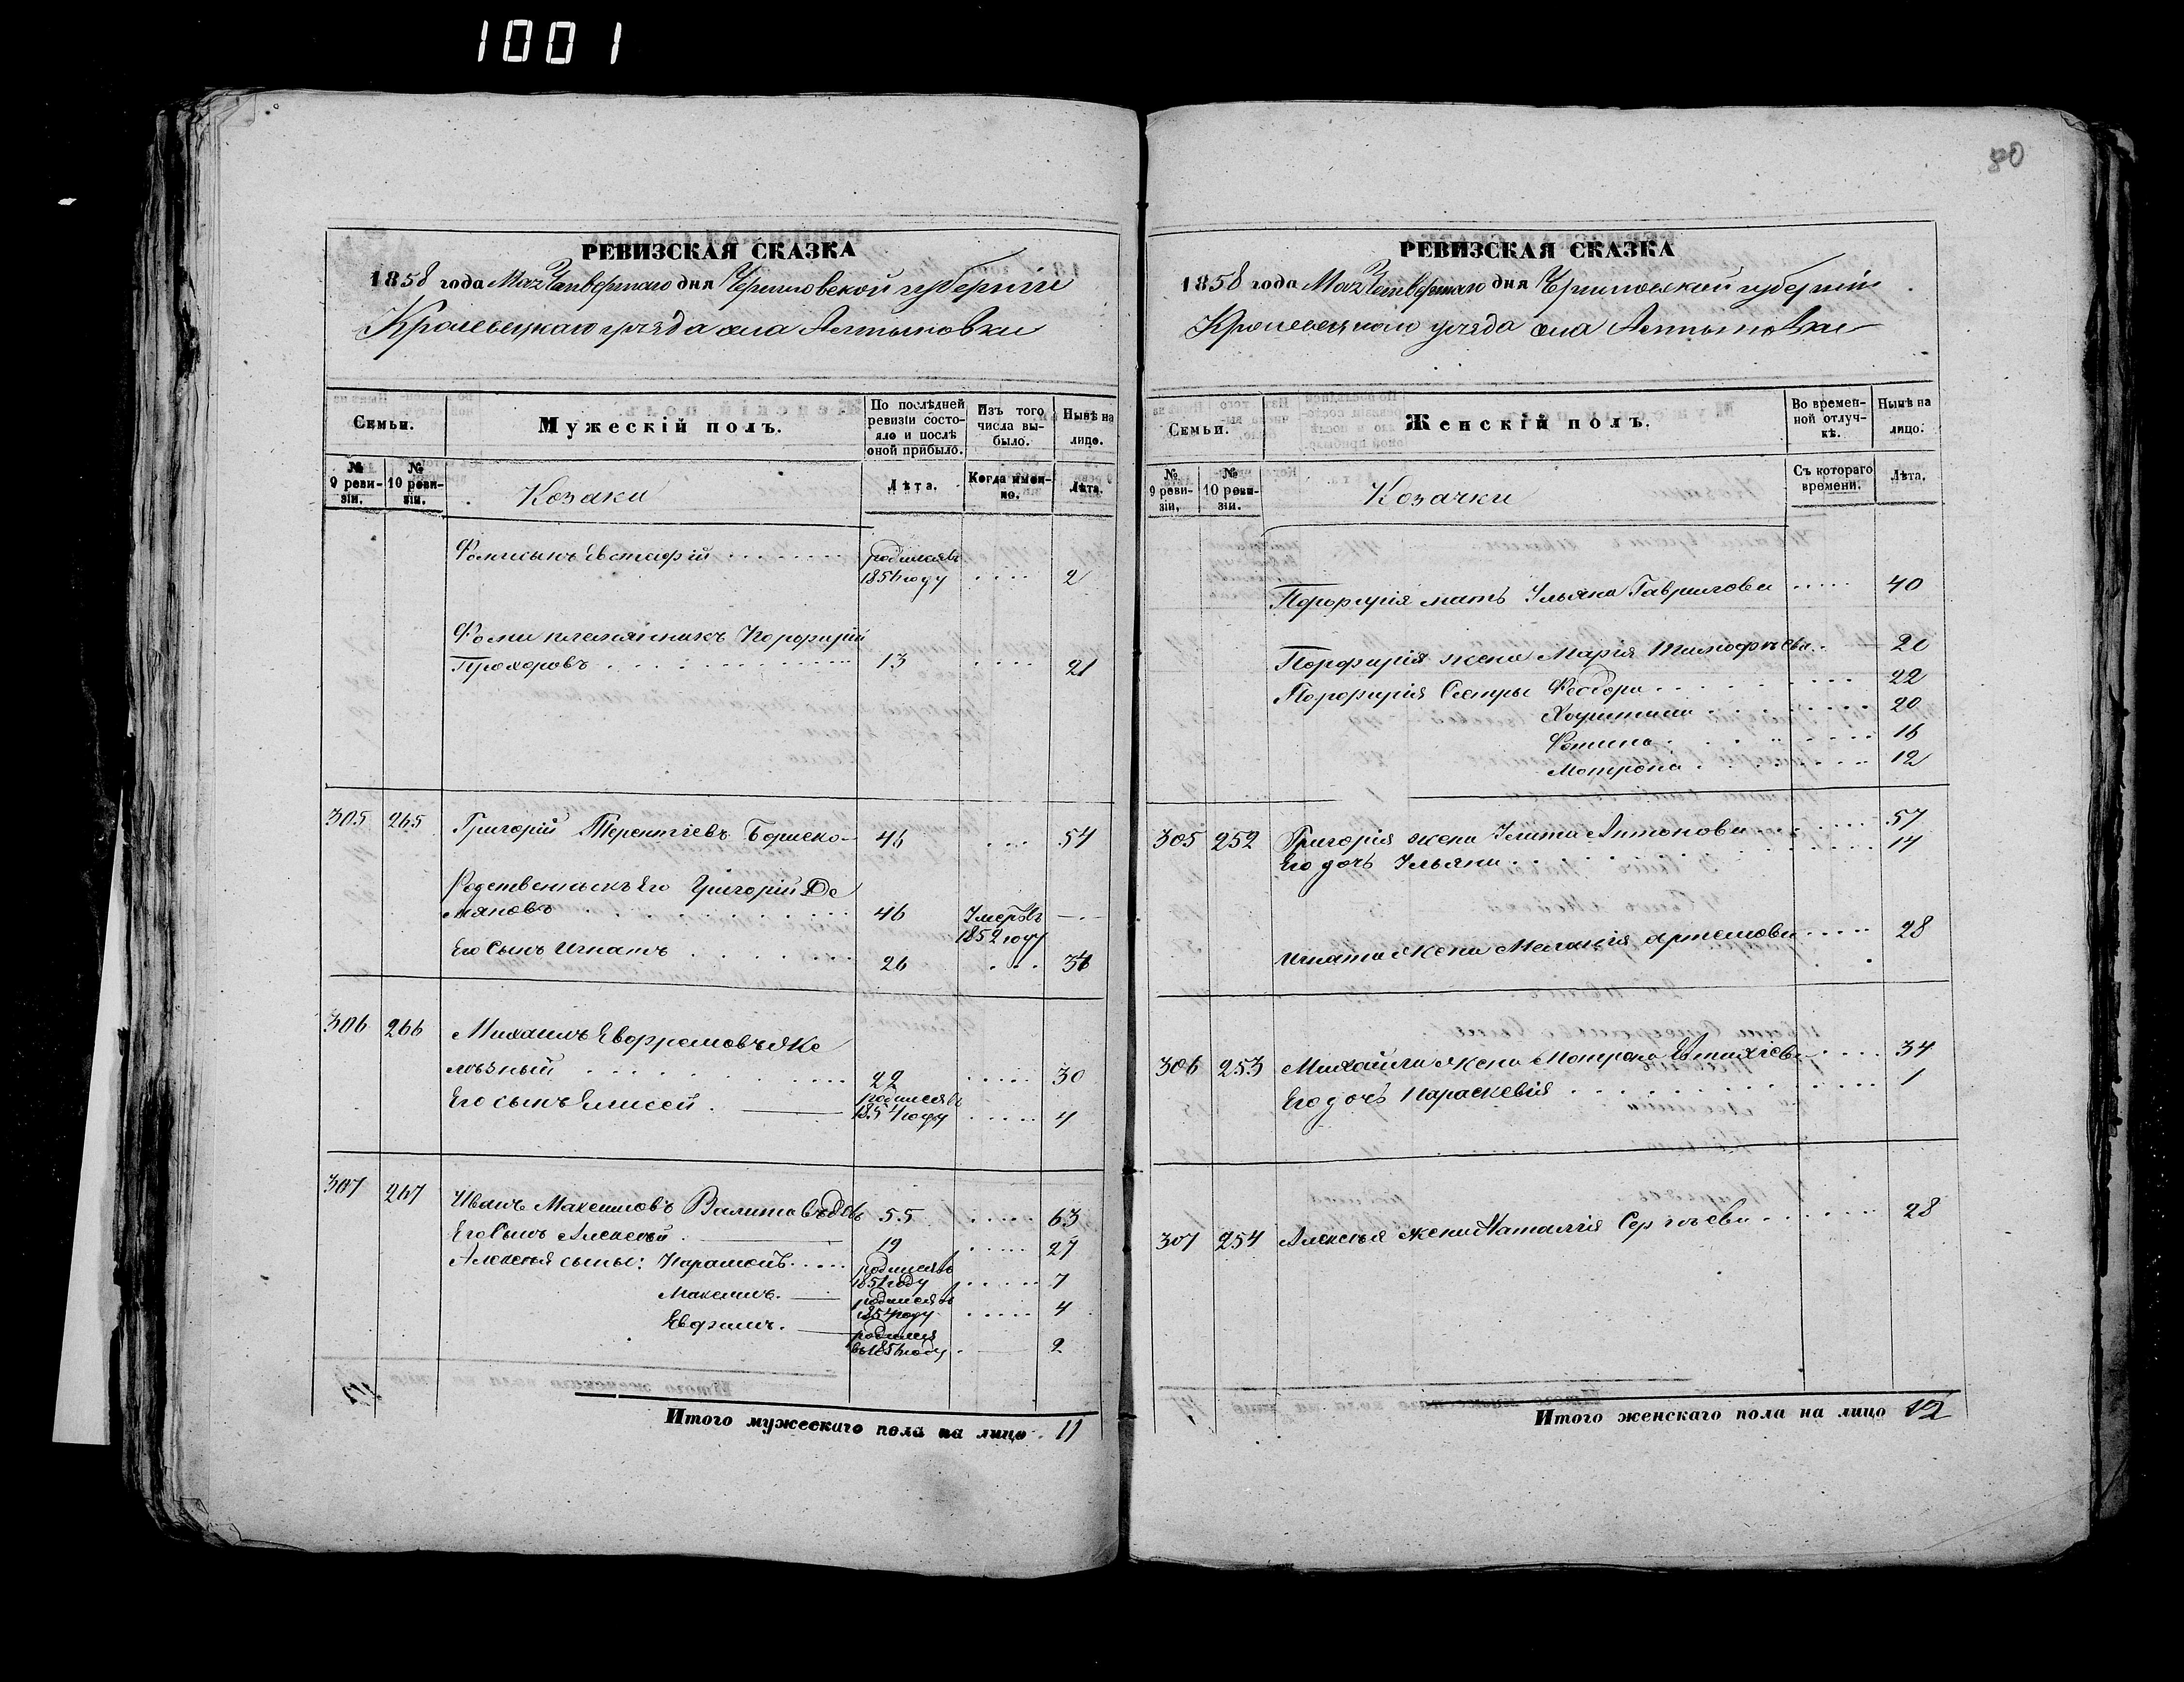 1001
80
РЕВИЗСКАЯ СКАЗКА
1858 года Мая Четвертаго дня Черниговской губернiи
Кролевецкаго уезда села Алтыновки
Семьи.
Мужескiй полъ.
По послѣдней ревизiи состояло и послѣ оной прибыло.
Изъ того числа выбыло.
Нынѣ на лицо.
№ 9 ревизiи.
№ 10 ревизiи.
Козаки
Лѣта.
Когда именно.
Лѣта.
Фомы сынъ Евстафiй родился въ 185 году 2
Фомы племянникъ Порфирiй
Прохоровъ 13 21
305 265 Григорiй Терентiевъ 46 54
Родственникъ Его Григорiй Де
мяновъ 46 Умеръ въ 1852 году
Его Сынъ Игнатъ 26 34
306 266 Михаилъ Ефремовъ Же
лѣзный 22 30
Его сынъ Елисей родился въ 1854 году 4
307 267 Иванъ Максимовъ 55 63
Его Сынъ Алексѣй 19 27
Алексѣя сыны: Парамонъ родился въ 1851 году 7
Максимъ родился въ 1854 году 4
родился въ 185 году 2
Итого мужескаго пола на лицо 11
РЕВИЗСКАЯ СКАЗКА
1858 года Мая Четвертаго дня Черниговской губернiи
Кролевецкаго уезда села Алтыновки
Семьи.
Женскiй полъ.
Во временной отлучкѣ.
Нынѣ на лицо.
№ 9 ревизiи.
№ 10 ревизiи.
Козачки
Съ котораго времени.
Лѣта.
Порфирiя мать Ульяна Гаврилова 40
Порфирiя жена Марiя Тимофѣева 20
Порфирiя Сестры Феодора 22
Христина 20
16
Мотрона 12
305 252 Григорiя жена Улита Антонова 57
Его дочь Ульяна 14
Игната жена Меланiя Артемова 28
306 253 Михайла жена Мотрона Евтихiева 34
Его дочь Параскевiя 1
307 254 Алексѣя жена Наталiя Сергѣева 28
Итого женскаго пола на лицо 12